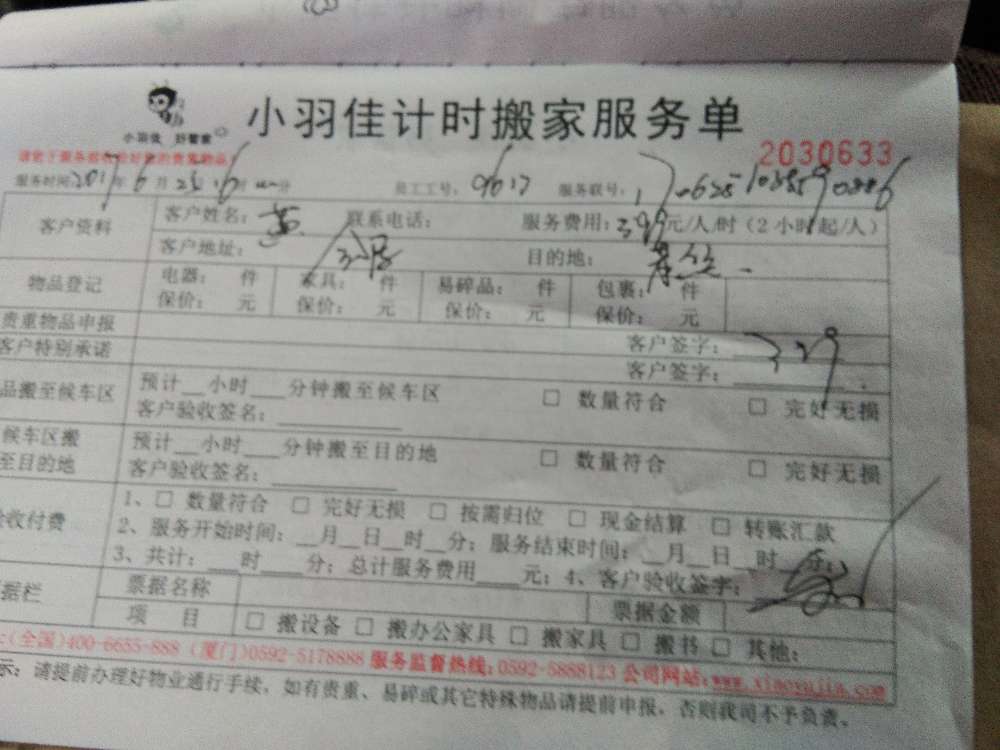 小羽佳 好管家
小羽佳计时搬家服务单
2030633
服务时间:2017年6月25 16时 分 员工工号: 9617 服务联号:
客户资料 客户姓名: 黄 联系电话: 服务费用: 399元/人/时(2小时起/人)
客户地址: 目的地:
物品登记 电器: 件 家具: 件 易碎品: 件 包裹: 件
保价: 元 保价: 元 保价: 元 保价: 元
贵重物品申报 客户签字:
客户特别承诺 客户签字:
品搬至候车区 预计__小时___分钟搬至候车区 □ 数量符合 □ 完好无损
客户验收签名:
候车区搬至目的地 预计__小时___分钟搬至目的地 □ 数量符合 □ 完好无损
客户验收签名:
收付费 1、□ 数量符合 □ 完好无损 □ 按需归位 □ 现金结算 □ 转账汇款
2、服务开始时间:__月__日__时__分;服务结束时间:__月__日__时__分;
3、共计:___时____分;总计服务费用____元;4、客户验收签字:
据栏 票据名称 票据金额
项 目 □ 搬设备 □ 搬办公家具 □ 搬家具 □ 搬书 □ 其他:
(全国)400-6655-888 (厦门)0592-5178888 服务监督热线:0592-5888123 公司网站:www.xiaoyujia.com
示:请提前办理好物业通行手续,如有贵重、易碎或其它特殊物品请提前申报,否则我司不予负责。